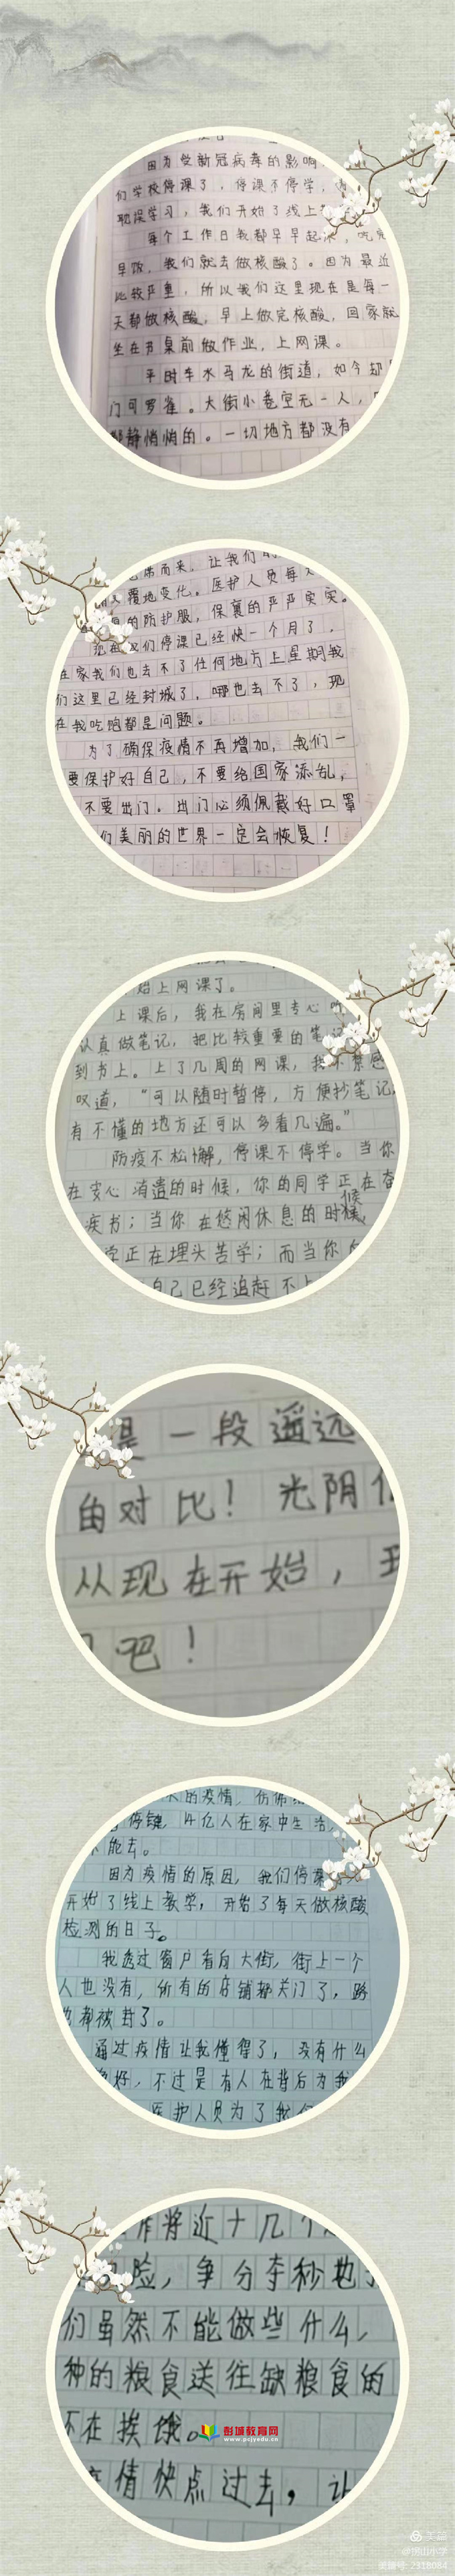 因为受新冠病毒的影响
们学校停课了，停课不停学，
耽误学习，我们开始了线上
每个工作日我都早早起床，吃完
早饭，我们就去做核酸了。因为最近
比较严重，所以我们这里现在是每一
天都做核酸，早上做完核酸，回家就
坐在书桌前做作业，上网课。
平时车水马龙的街道，如今却
门可罗雀。大街小巷空无一人，
都静悄悄的。一切地方都没有
席而来，让我们的
覆地变化。医护人员每天
的防护服，保裹的严严实实。
们停课已经快一个月了，
在家我们也去不了任何地方上星期我
们这里已经封城了，哪也去不了，现
在我吃饱都是问题。
为了确保疫情不再增加，我们一
要保护好自己，不要给国家添乱，
不要出门。出门必须佩戴好口罩
们美丽的世界一定会恢复！
始上网课了。
上课后，我在房间里专心听
认真做笔记，把比较重要的笔记
到书上。上了几周的网课，我不禁感
叹道，“可以随时暂停，方便抄笔记
有不懂的地方还可以多看几遍。”
防疫不松懈，停课不停学。当你
在安心消遣的时候，你的同学正在奋
疾书；当你在悠闲休息的时候
学正在埋头苦学；而当你
自己已经追赶不上
是一段遥远
由对比！光阴
从现在开始，
吧！
的疫情，仿佛
停键，14亿人在家中生活，
能去。
因为疫情的原因，我们停课
开始了线上教学，开始了每天做核酸
检测的日子。
我透过窗户看向大街，街上一个
人也没有，所有的店铺都关门了，路
也都被封了。
通过疫情让我懂得了，没有什么
好，不过是有人在背后为我
医护人员为了我们
作将近十几个
险，争分夺秒地
们虽然不能做些什么，
种的粮食送往缺粮食的
不在挨饿。
彭城教育网
www.pcjyedu.cn
疫情快点过去，让
美篇
美篇号 2318084